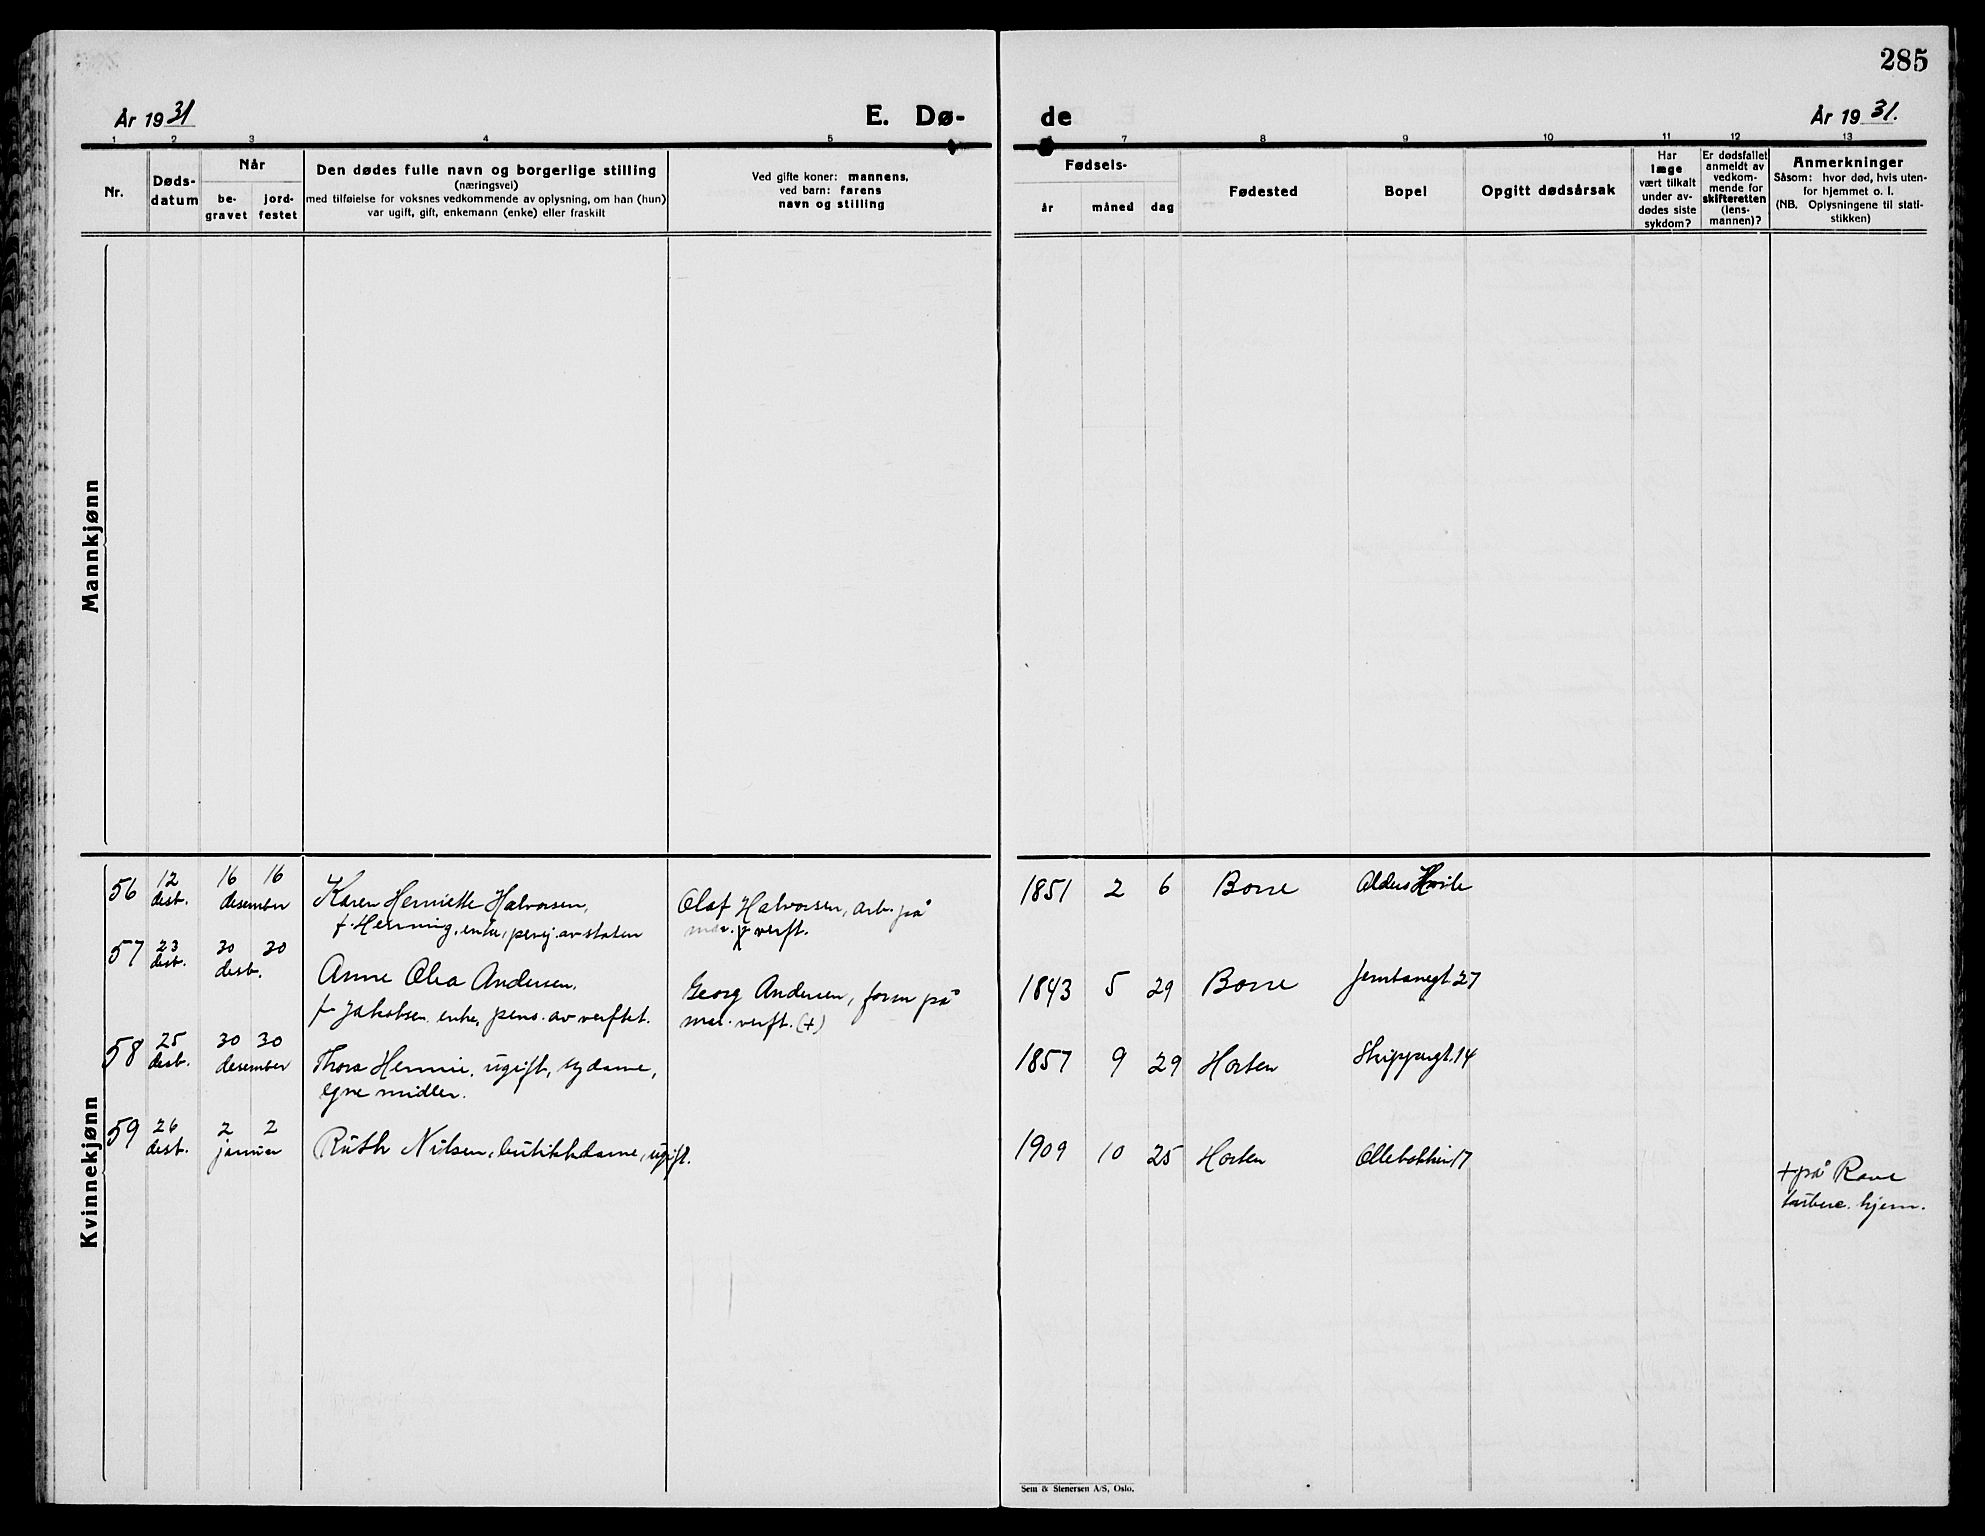 285
År 1931
E. Dø-
de
År 1931.
1 2 3 4 5
6 7 8 9 10 11 12 13
Nr.
Døds-
datum
Når
be-
gravet
jord-
festet
Den dødes fulle navn og borgerlige stilling
(næringsvei)
med tilføielse for voksnes vedkommende av oplysning, om han (hun)
var ugift, gift, enkemann (enke) eller fraskilt
Ved gifte koner: mannens,
ved barn: farens
navn og stilling
Fødsels-
år
måned
dag
Fødested
Bopel
Opgitt dødsårsak
Har
læge
vært tilkalt
under av-
dødes siste
sykdom?
Er dødsfallet
anmeldt av
vedkom-
mende for
skifteretten
(lens-
mannen)?
Anmerkninger
Såsom: hvor død, hvis uten-
for hjemmet o. l.
(NB. Oplysningene til stati-
stikken)
Mannkjønn
Kvinnekjønn
56 12 16 16 Karen Henriette Halvorsen, Olaf Halvorsen, arb. på 1851 2 6 Borre Alders Hvile
desb. desember f. Henning, enke, pensj. av staten mar. verft.
57 23 30 30 Anne Olea Andersen, Georg Andersen, form på 1843 5 29 Borre Jernbanegt. 27
desb. desb. f. Jakobsen. enke, pens. av verftet. mar. verft. (+)
58 25 30 30 Thora Hennie, ugift, sydame, 1857 9 29 Horten Skippergt. 14
desb. desember egne midler.
59 26 2 2 Ruth Nilsen, butikkdame, ugift. 1909 10 25 Horten Ollebakken 17
desb. januar
+ på Rove
tuberc. hjem.
Sem & Stenersen A/S, Oslo.